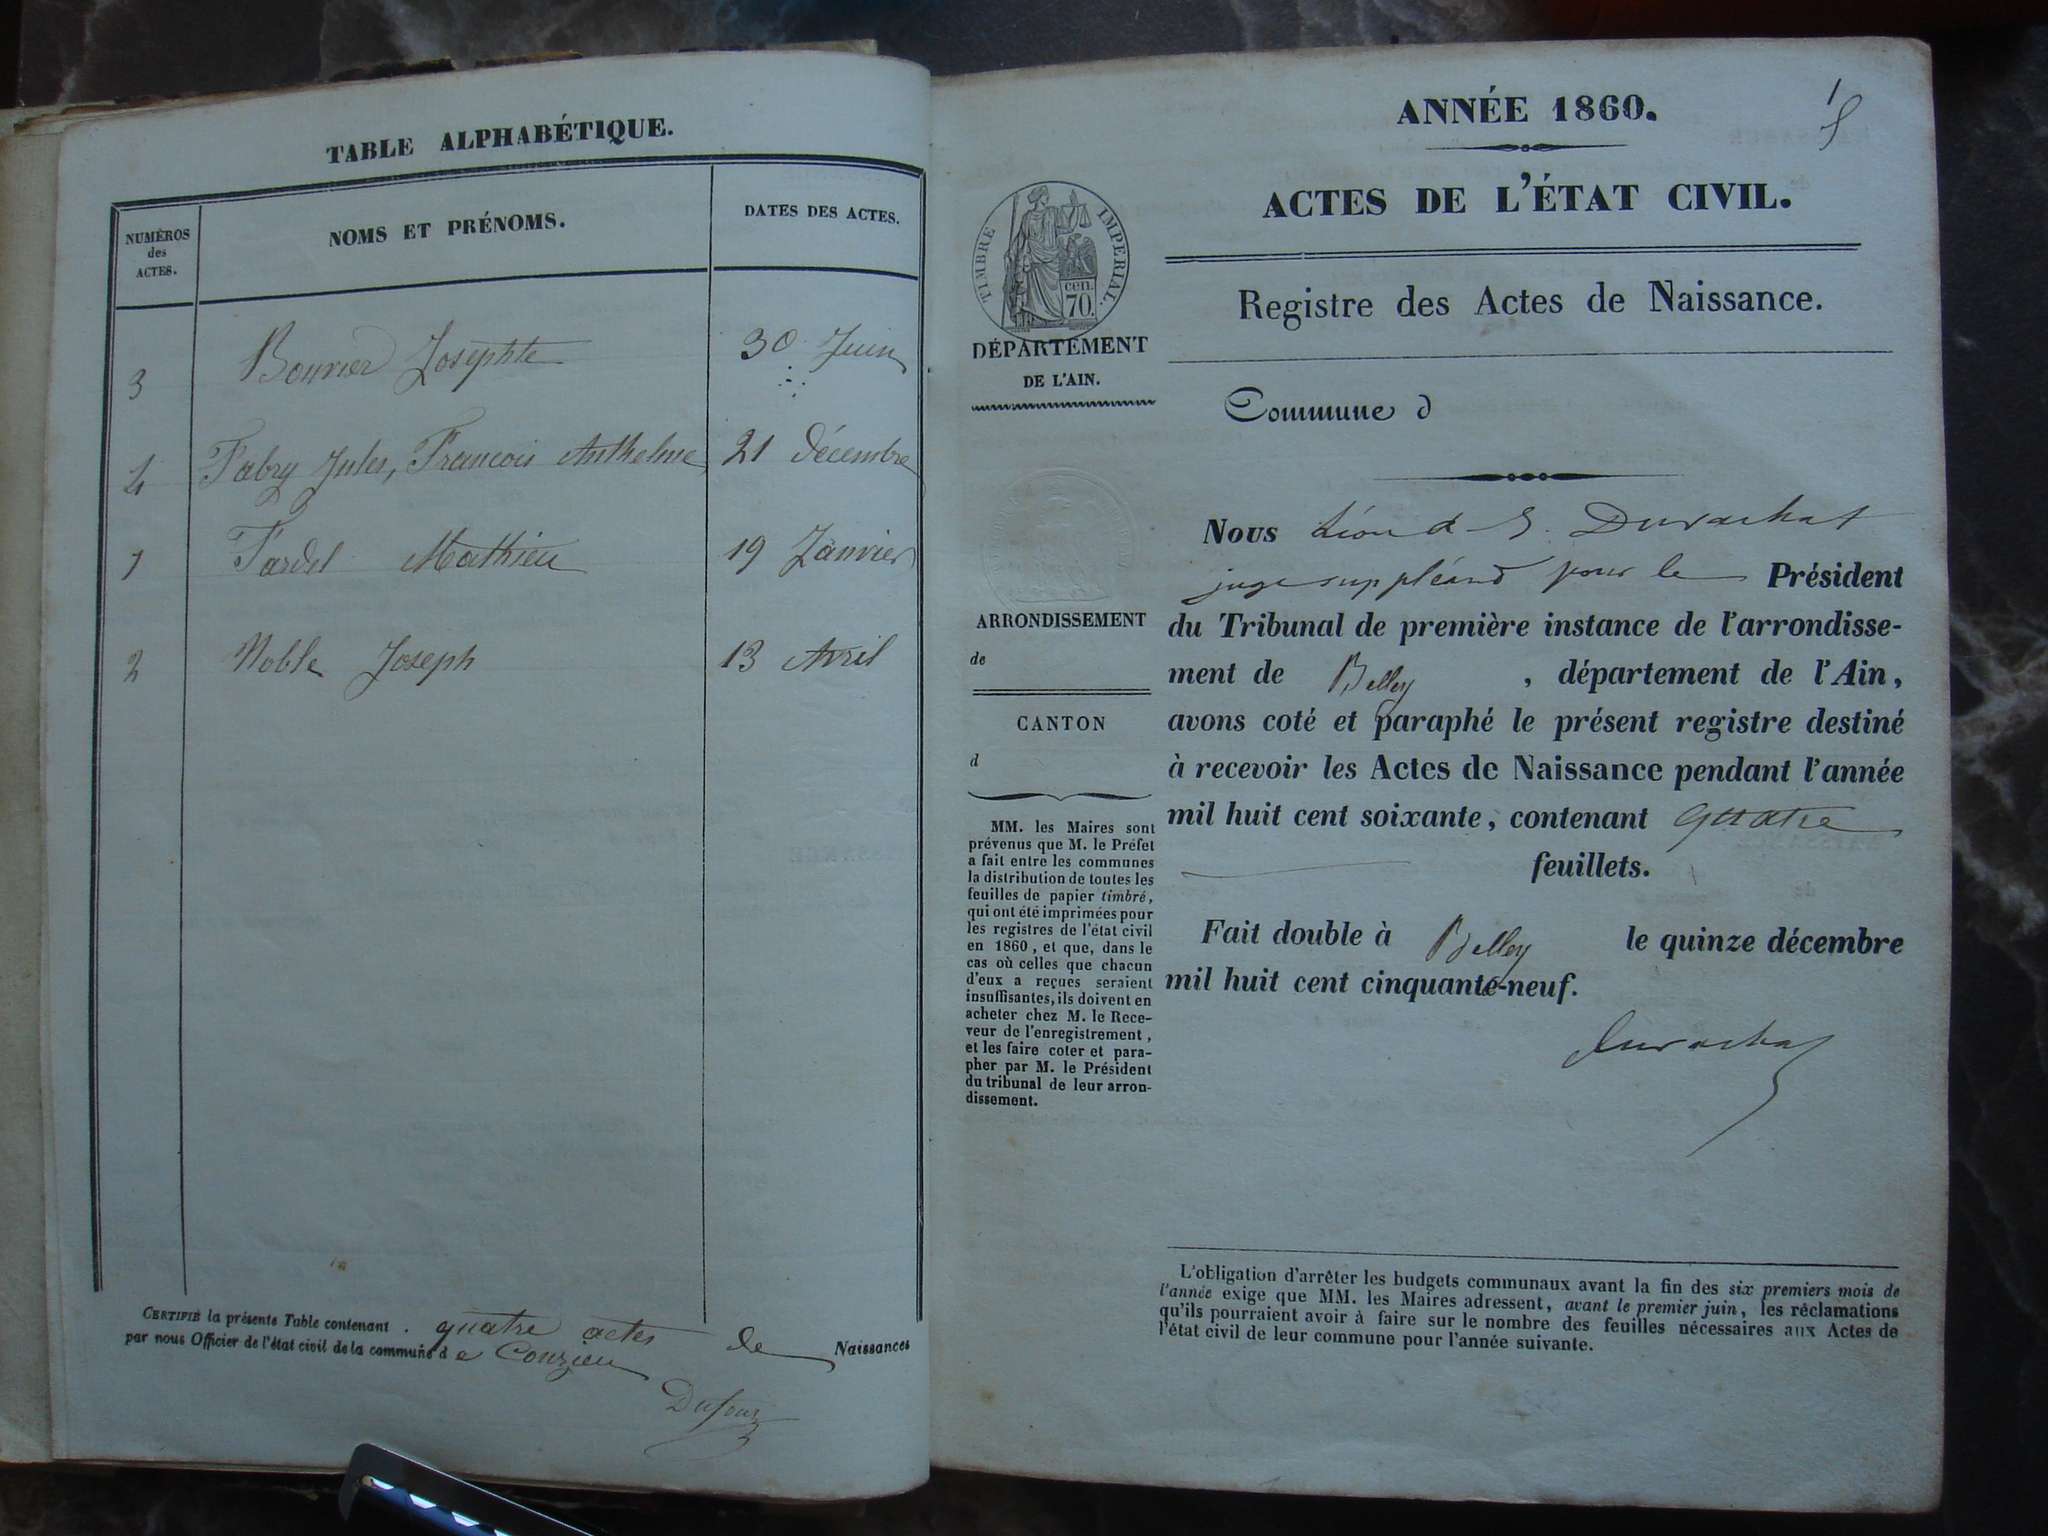 TABLE ALPHABÉTIQUE.
NUMÉROS des ACTES.
NOMS ET PRÉNOMS.
DATES DES ACTES.
3 Bouvier Josephte 30 Juin
4 Fabry Jules, François Anthelme 21 Décembre
1 Fardel Mathieu 19 Janvier
2 Noble Joseph 13 Avril
CERTIFIÉ la présente Table contenant quatre actes de Naissances
par nous Officier de l'état civil de la commune de Conzieu
Dufour
1
ANNÉE 1860.
ACTES DE L'ÉTAT CIVIL.
Registre des Actes de Naissance.
TIMBRE IMPERIAL.
cen.
70.
DÉPARTEMENT
DE L'AIN.
Commune d
ARRONDISSEMENT
de
CANTON
d
MM. les Maires sont
prévenus que M. le Préfet
a fait entre les communes
la distribution de toutes les
feuilles de papier timbré,
qui ont été imprimées pour
les registres de l'état civil
en 1860, et que, dans le
cas où celles que chacun
d'eux a reçues seraient
insuffisantes, ils doivent en
acheter chez M. le Rece-
veur de l'enregistrement,
et les faire coter et para-
pher par M. le Président
du tribunal de leur arron-
dissement.
Nous Durachat
juge suppléant pour le Président
du Tribunal de première instance de l'arrondisse-
ment de Belley, département de l'Ain,
avons coté et paraphé le présent registre destiné
à recevoir les Actes de Naissance pendant l'année
mil huit cent soixante, contenant quatre
feuillets.
Fait double à Belley le quinze décembre
mil huit cent cinquante-neuf.
Durachat
L'obligation d'arrêter les budgets communaux avant la fin des six premiers mois de
l'année exige que MM. les Maires adressent, avant le premier juin, les réclamations
qu'ils pourraient avoir à faire sur le nombre des feuilles nécessaires aux Actes de
l'état civil de leur commune pour l'année suivante.